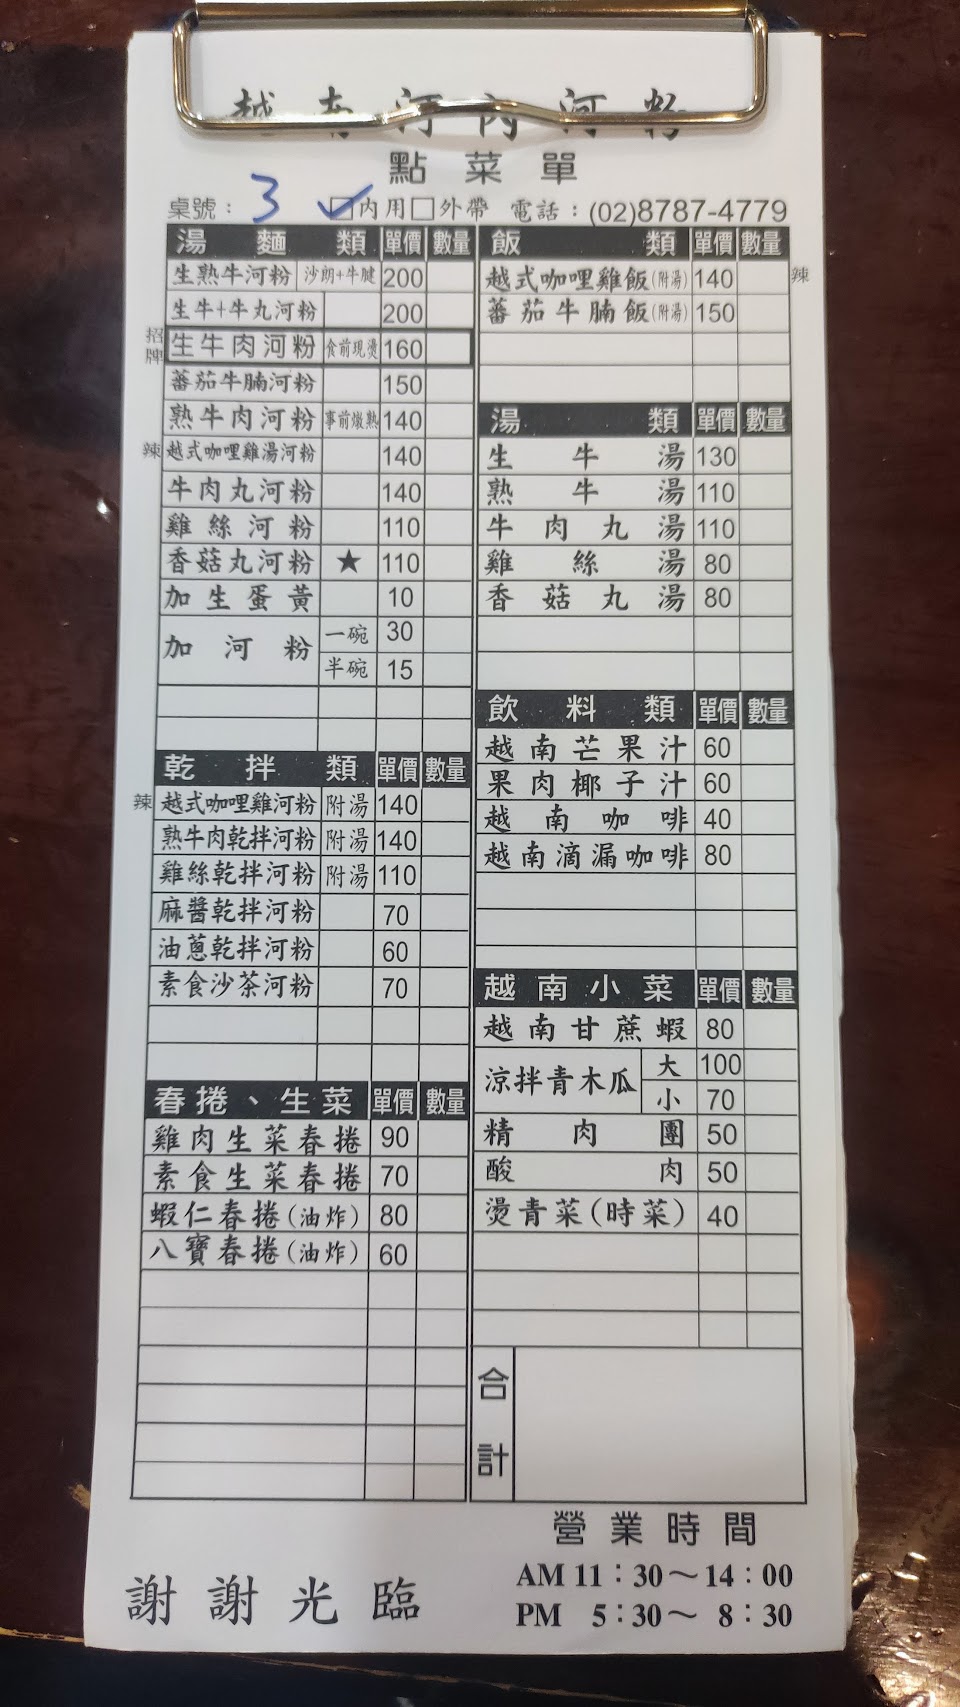 越南河內河粉
點菜單
桌號： 3 ✓□內用□外帶 電話：(02)8787-4779
湯麵類 單價 數量
生熟牛河粉 沙朗+牛腱 200
生牛+牛丸河粉 200
招牌 生牛肉河粉 食前現燙 160
蕃茄牛腩河粉 150
熟牛肉河粉 事前燉熟 140
辣 越式咖哩雞湯河粉 140
牛肉丸河粉 140
雞絲河粉 110
香菇丸河粉 ★ 110
加生蛋黃 10
加河粉 一碗 30
半碗 15
乾拌類 單價 數量
辣 越式咖哩雞河粉 附湯 140
熟牛肉乾拌河粉 附湯 140
雞絲乾拌河粉 附湯 110
麻醬乾拌河粉 70
油蔥乾拌河粉 60
素食沙茶河粉 70
春捲、生菜 單價 數量
雞肉生菜春捲 90
素食生菜春捲 70
蝦仁春捲(油炸) 80
八寶春捲(油炸) 60
飯類 單價 數量
越式咖哩雞飯(附湯) 140 辣
蕃茄牛腩飯(附湯) 150
湯類 單價 數量
生牛湯 130
熟牛湯 110
牛肉丸湯 110
雞絲湯 80
香菇丸湯 80
飲料類 單價 數量
越南芒果汁 60
果肉椰子汁 60
越南咖啡 40
越南滴漏咖啡 80
越南小菜 單價 數量
越南甘蔗蝦 80
涼拌青木瓜 大 100
小 70
精肉團 50
酸肉 50
燙青菜(時菜) 40
合計
營業時間
AM 11：30～14：00
PM 5：30～ 8：30
謝謝光臨